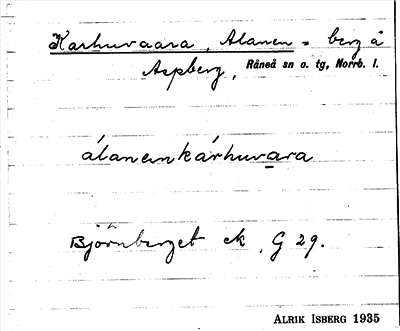 Karhuvaara, Alanen = berg å
Aspberg, Råneå sn o. tg, Norrb. l.
álanenkárhuvara
Björnberget ek. G 29.
ALRIK ISBERG 1935